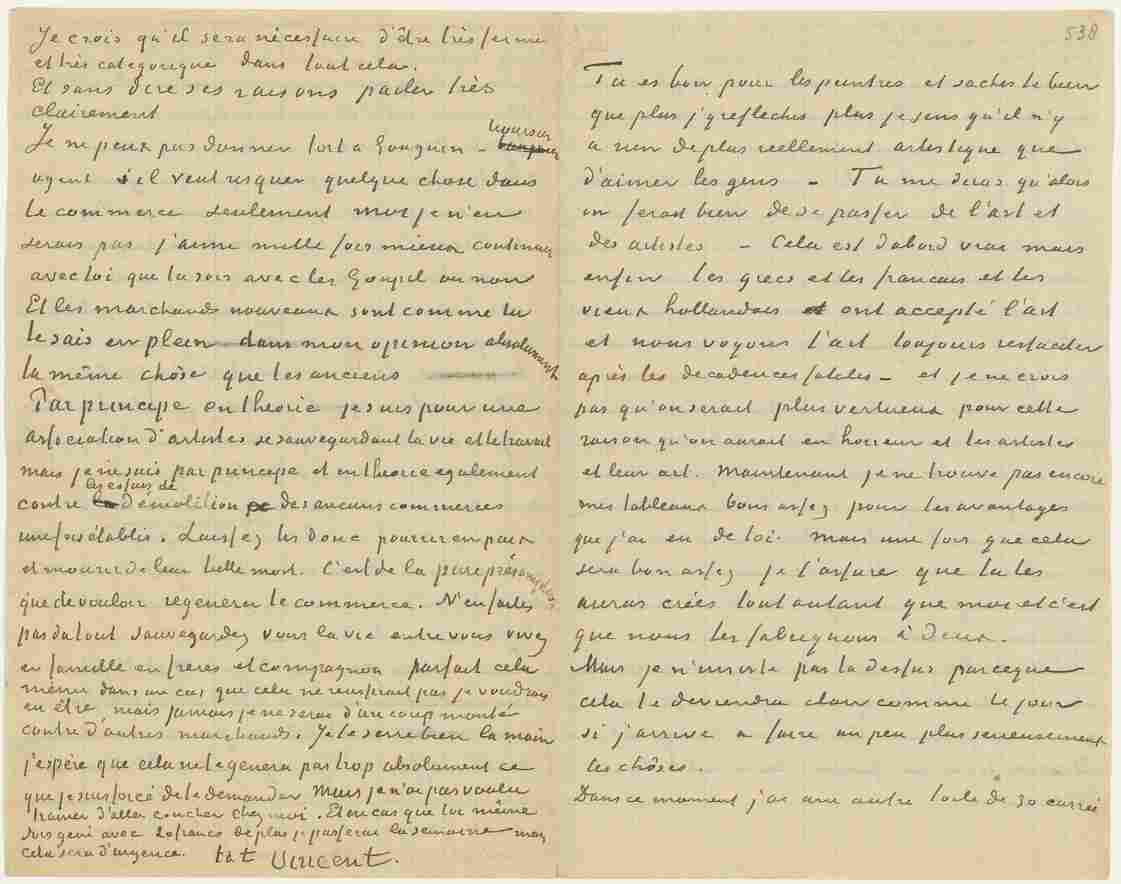 Je crois qu'il sera nécessaire d'être très ferme
et très categorique dans tout cela.
Et sans dire ses raisons parler très
clairement
Je ne peux pas donner tort à Gauguin –
agent s'il veut risquer quelque chose dans
le commerce seulement moi je n'en
serais pas j'aime mille fois mieux continuer
avec toi que tu sois avec les Goupil ou non
Et les marchands nouveaux sont comme tu
le sais en plein dans mon opinion absolument
la même chôse que les anciens
Par principe en theorie je suis pour une
association d'artistes se sauvegardant la vie et le travail
mais je ne suis par principe et en theorie egalement
les essais de
contre démolition des anciens commerces
une fois établis. Laissez les donc pourrir en paix
et mourir de leur belle mort. C'est de la pure présomption
que de vouloir regenerer le commerce. N'en faites
pas du tout sauvegardez vous la vie entre vous vivez
en famille en frères et compagnon parfait cela
même dans un cas que cela ne reussirait pas je voudrais
en être, mais jamais je ne serai d'un coup monté
contre d'autres marchands. Je te serre bien la main
j'espère que cela ne te genera pas trop absolument ce
que je suis forcé de te demander Mais je n'ai pas voulu
trainer d'aller coucher chez moi. Et en cas que toi même
sois gené avec 20 francs de plus je passerai la semaine mais
cela sera d'urgence. t. à t. Vincent.
538
Tu es bon pour les peintres et saches le bien
que plus j'y reflechis plus je sens qu'il n'y
a rien de plus reellement artistique que
d'aimer les gens – Tu me diras qu'alors
on ferait bien de se passer de l'art et
des artistes – Cela est d'abord vrai mais
enfin les grecs et les francais et les
vieux hollandais ont accepté l'art
et nous voyons l'art toujours ressusciter
après les decadences fatales – et je ne crois
pas qu'on serait plus vertueux pour cette
raison qu'on aurait en horreur et les artistes
et leur art. Maintenant je ne trouve pas encore
mes tableaux bons assez pour les avantages
que j'ai eu de toi. Mais une fois que cela
sera bon assez je t'assure que tu les
auras créés tout autant que moi et c'est
que nous les fabriquons à deux.
Mais je n'insiste pas la dessus parceque
cela te deviendra clair comme le jour
si j'arrive à faire un peu plus serieusement
les chôses.
Dans ce moment j'ai une autre toile de 30 carrée